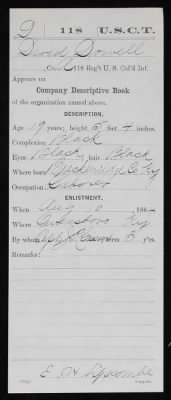 D | 118 | U.S.C.T.
David Dowell
, Co. , 118 Reg't U. S. Col'd Inf.
Appears on
Company Descriptive Book
of the organization named above.
DESCRIPTION.
Age 19 years; height 5 feet 4 inches.
Complexion Black
Eyes Black, hair Black
Where born Breckenridge Co Ky
Occupation Laborer
ENLISTMENT.
When Aug 19, 186
Where Owensboro Ky
By whom term 3 y'rs.
Remarks:
E. A. Lipscombe